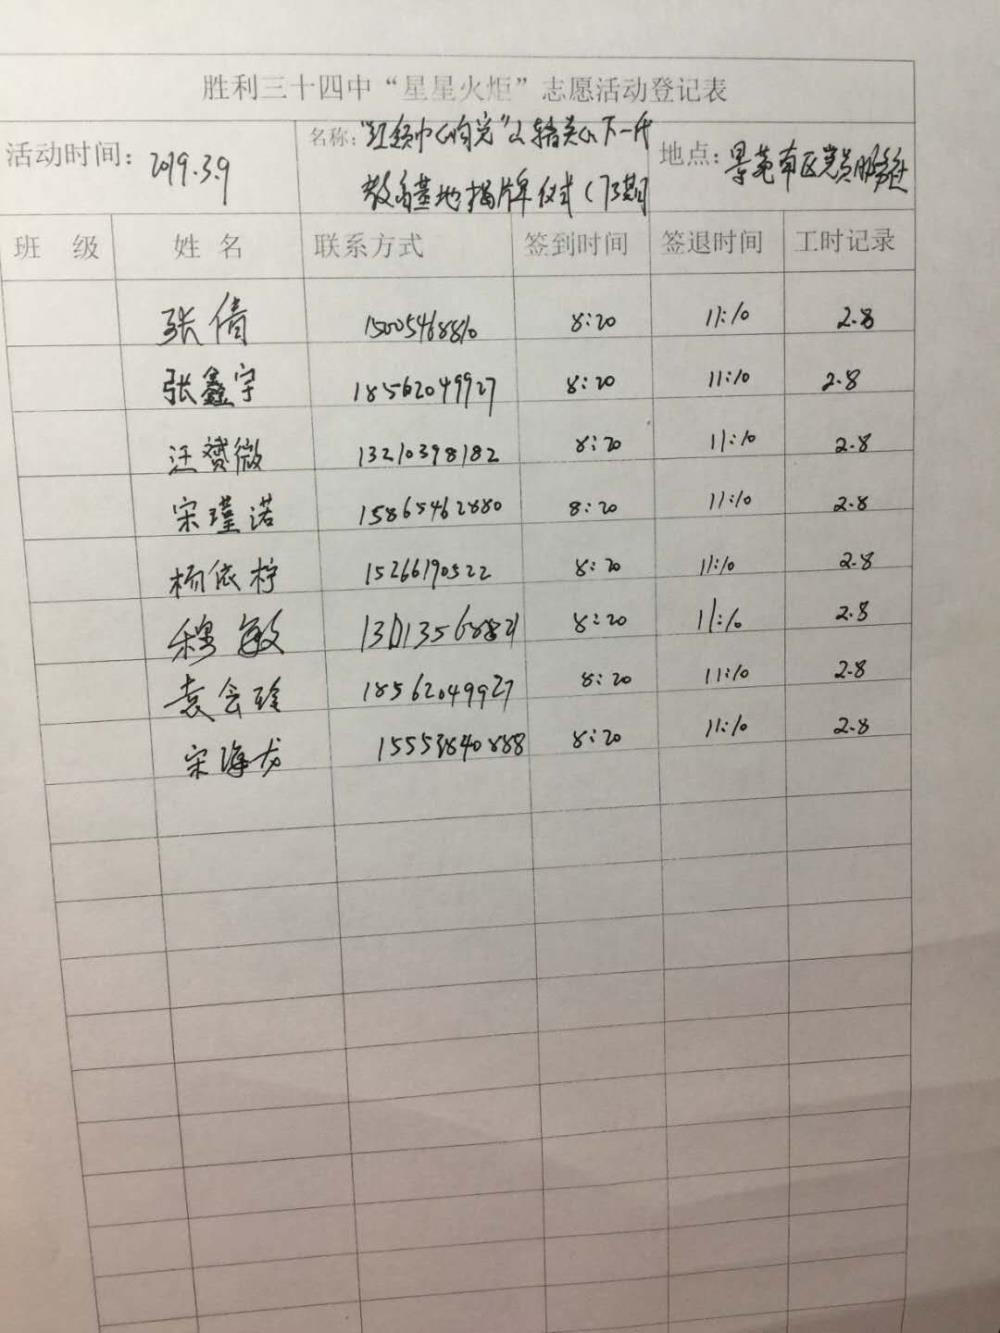 胜利三十四中“星星火炬”志愿活动登记表
活动时间：2019.3.9 名称：“红领巾心向党”关心下一代 地点：景苑南区党员服务社
教育基地揭牌仪式（73期
班 级 姓 名 联系方式 签到时间 签退时间 工时记录
张倩 15005468810 8:20 11:10 2.8
张鑫宇 18562049927 8:20 11:10 2.8
汪赟微 13210398182 8:20 11:10 2.8
宋瑾诺 15865462880 8:20 11:10 2.8
杨依柠 15266190522 8:20 11:10 2.8
穆敏 8:20 11:10 2.8
袁会玲 18562049927 8:20 11:10 2.8
宋海龙 15553840888 8:20 11:10 2.8